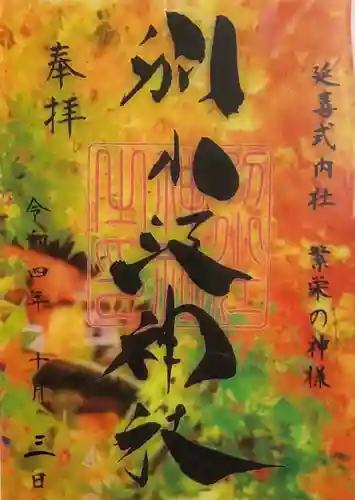 延喜式内社 繁栄の神様
別小江神社
奉拝
令和四年 十月 三日